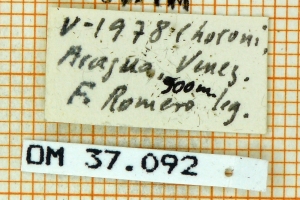 V-1978 Choroni,
Aragua, Vnez.
500m.
F. Romero leg.
OM 37.092